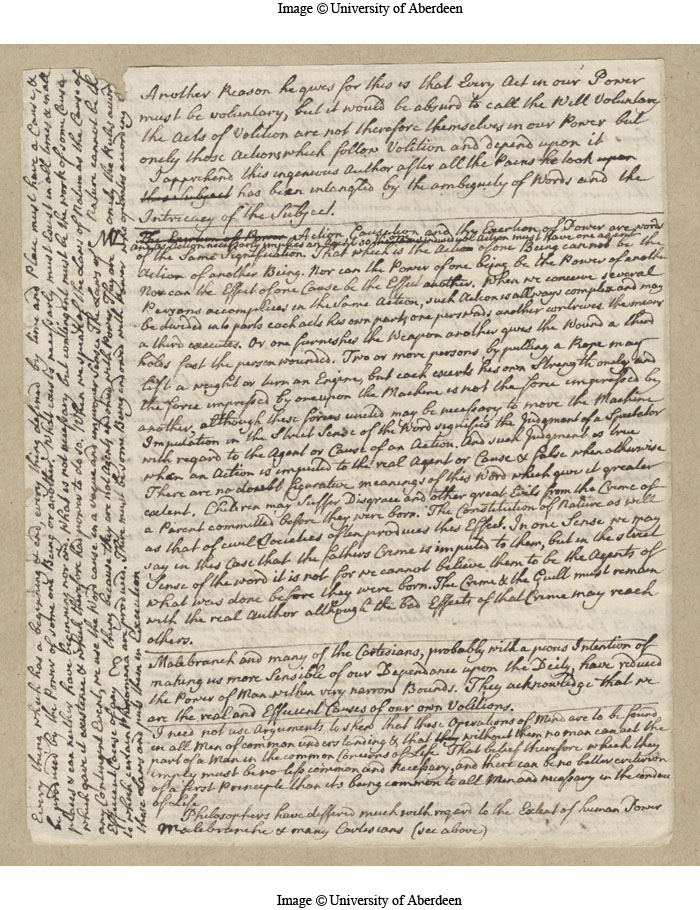 Image © University of Aberdeen
Another Reason he gives for this is that Every Act in our Power
must be voluntary, but it would be absurd to call the Will Voluntary
the Acts of Volition are not therefore themselves in our Power but
onely those Actions which follow Volition and depend upon it
I apprehend this ingenious Author after all the Pains he took upon
this Subject has been intangled by the ambiguity of Words and the
Intricacy of the Subject.
The Exertion of Power Action Causation and the Exertion of Power are words
of the Same Signification. That which is the Action of one Being cannot be the
Action of another Being. Nor can the Power of one being be the Power of another
Nor can the Effect of one Cause be the Effect another. When we conceive several
Persons accomplices in the same Action, such Action is allways complex and may
be divided into parts each acts his own part, one perswades another contrives the means
a third executes. Or one furnishes the Weapon another gives the Wound a third
holds fast the person wounded. Two or more persons by pulling a Rope may
lift a weight or turn an Engine, but each exerts his own Strength onely and
the force impressed by one upon the Machine is not the force impressed by
another, although these forces united may be necessary to move the Machine
Imputation in the Strict Sense of the Word signifies the Judgment of a Spectator
with regard to the Agent or Cause of an Action. And such Judgment is true
when an Action is imputed to the real Agent or Cause & false when otherwise
There are no doubt figurative meanings of this Word which give it greater
extent. Children may suffer Disgrace and other great Evils from the Crime of
a Parent committed before they were born. The Constitution of Nature as well
as that of civil Societies often produces this Effect. In one Sense we may
say in this Case that the fathers Crime is imputed to them, but in the strict
Sense of the word it is not for we cannot believe them to be the Agents of
what was done before they were born. The Crime & the Guilt must remain
with the real Author although the bad Effects of that Crime may reach
others.
Malebranch and many of the Cartesians, probably with a pious Intention of
making us more Sensible of our Dependance upon the Deity, have reduced
the Power of Man within very narrow Bounds. They acknowledge that we
are the real and Efficient Causes of our own Volitions.
I need not use Arguments to shew that these Operations of Mind are to be found
in all Men of common understanding & that without them no man can act the
part of a Man in the common Concerns of Life. That belief therefore which they
imply must be no less common and Necessary, and there can be no better criterion
of a first Principle than its being common to all Men and necessary in the conduct
of Life.
Philosophers have differed much with regard to the Extent of human Power
Malebranche & many Cartesians (see above)
Every thing which has a beginning & end, every thing defined by time and Place must have a Cause, &
be produced by the Power of some one Being or another. What exists necessarly, must exist in all times & in all
places & can neither have beginning nor end. What is not necessary but contingent must be the work of some Cause
which gave it existence & which therefore had power to do so. When we speak of the Laws of Nature as the Cause of
any Contingent Event, we use the Word cause in a vague and improper Sense. The Laws of Nature cannot be the
Efficient Cause of any thing because they are not Agents endowed with Power. They are onely the Rules according
to which certain Phenomena are produced. There must be some Being endowed with Power who operates according
these Laws and puts them in Execution
Image © University of Aberdeen